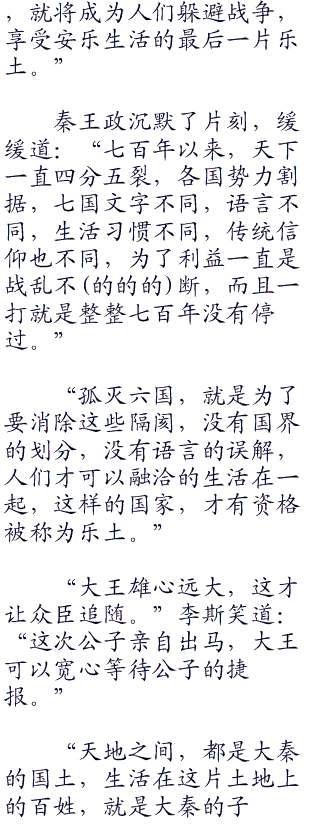 ，就将成为人们躲避战争，
享受安乐生活的最后一片乐
土。”
秦王政沉默了片刻，缓
缓道：“七百年以来，天下
一直四分五裂，各国势力割
据，七国文字不同，语言不
同，生活习惯不同，传统信
仰也不同，为了利益一直是
战乱不(的的的)断，而且一
打就是整整七百年没有停
过。”
“孤灭六国，就是为了
要消除这些隔阂，没有国界
的划分，没有语言的误解，
人们才可以融洽的生活在一
起，这样的国家，才有资格
被称为乐土。”
“大王雄心远大，这才
让众臣追随。”李斯笑道：
“这次公子亲自出马，大王
可以宽心等待公子的捷
报。”
“天地之间，都是大秦
的国土，生活在这片土地上
的百姓，就是大秦的子